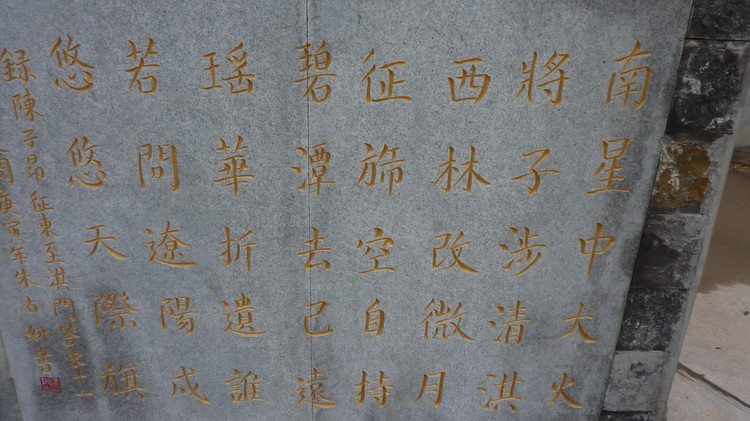 南星中大火
將子涉清淇
西林改微月
征旆空自持
碧潭去己遠
瑤華折遺誰
若問遼陽戍
悠悠天際旗
錄陳子昂征東至淇門答宋十一
庚寅年朱占書